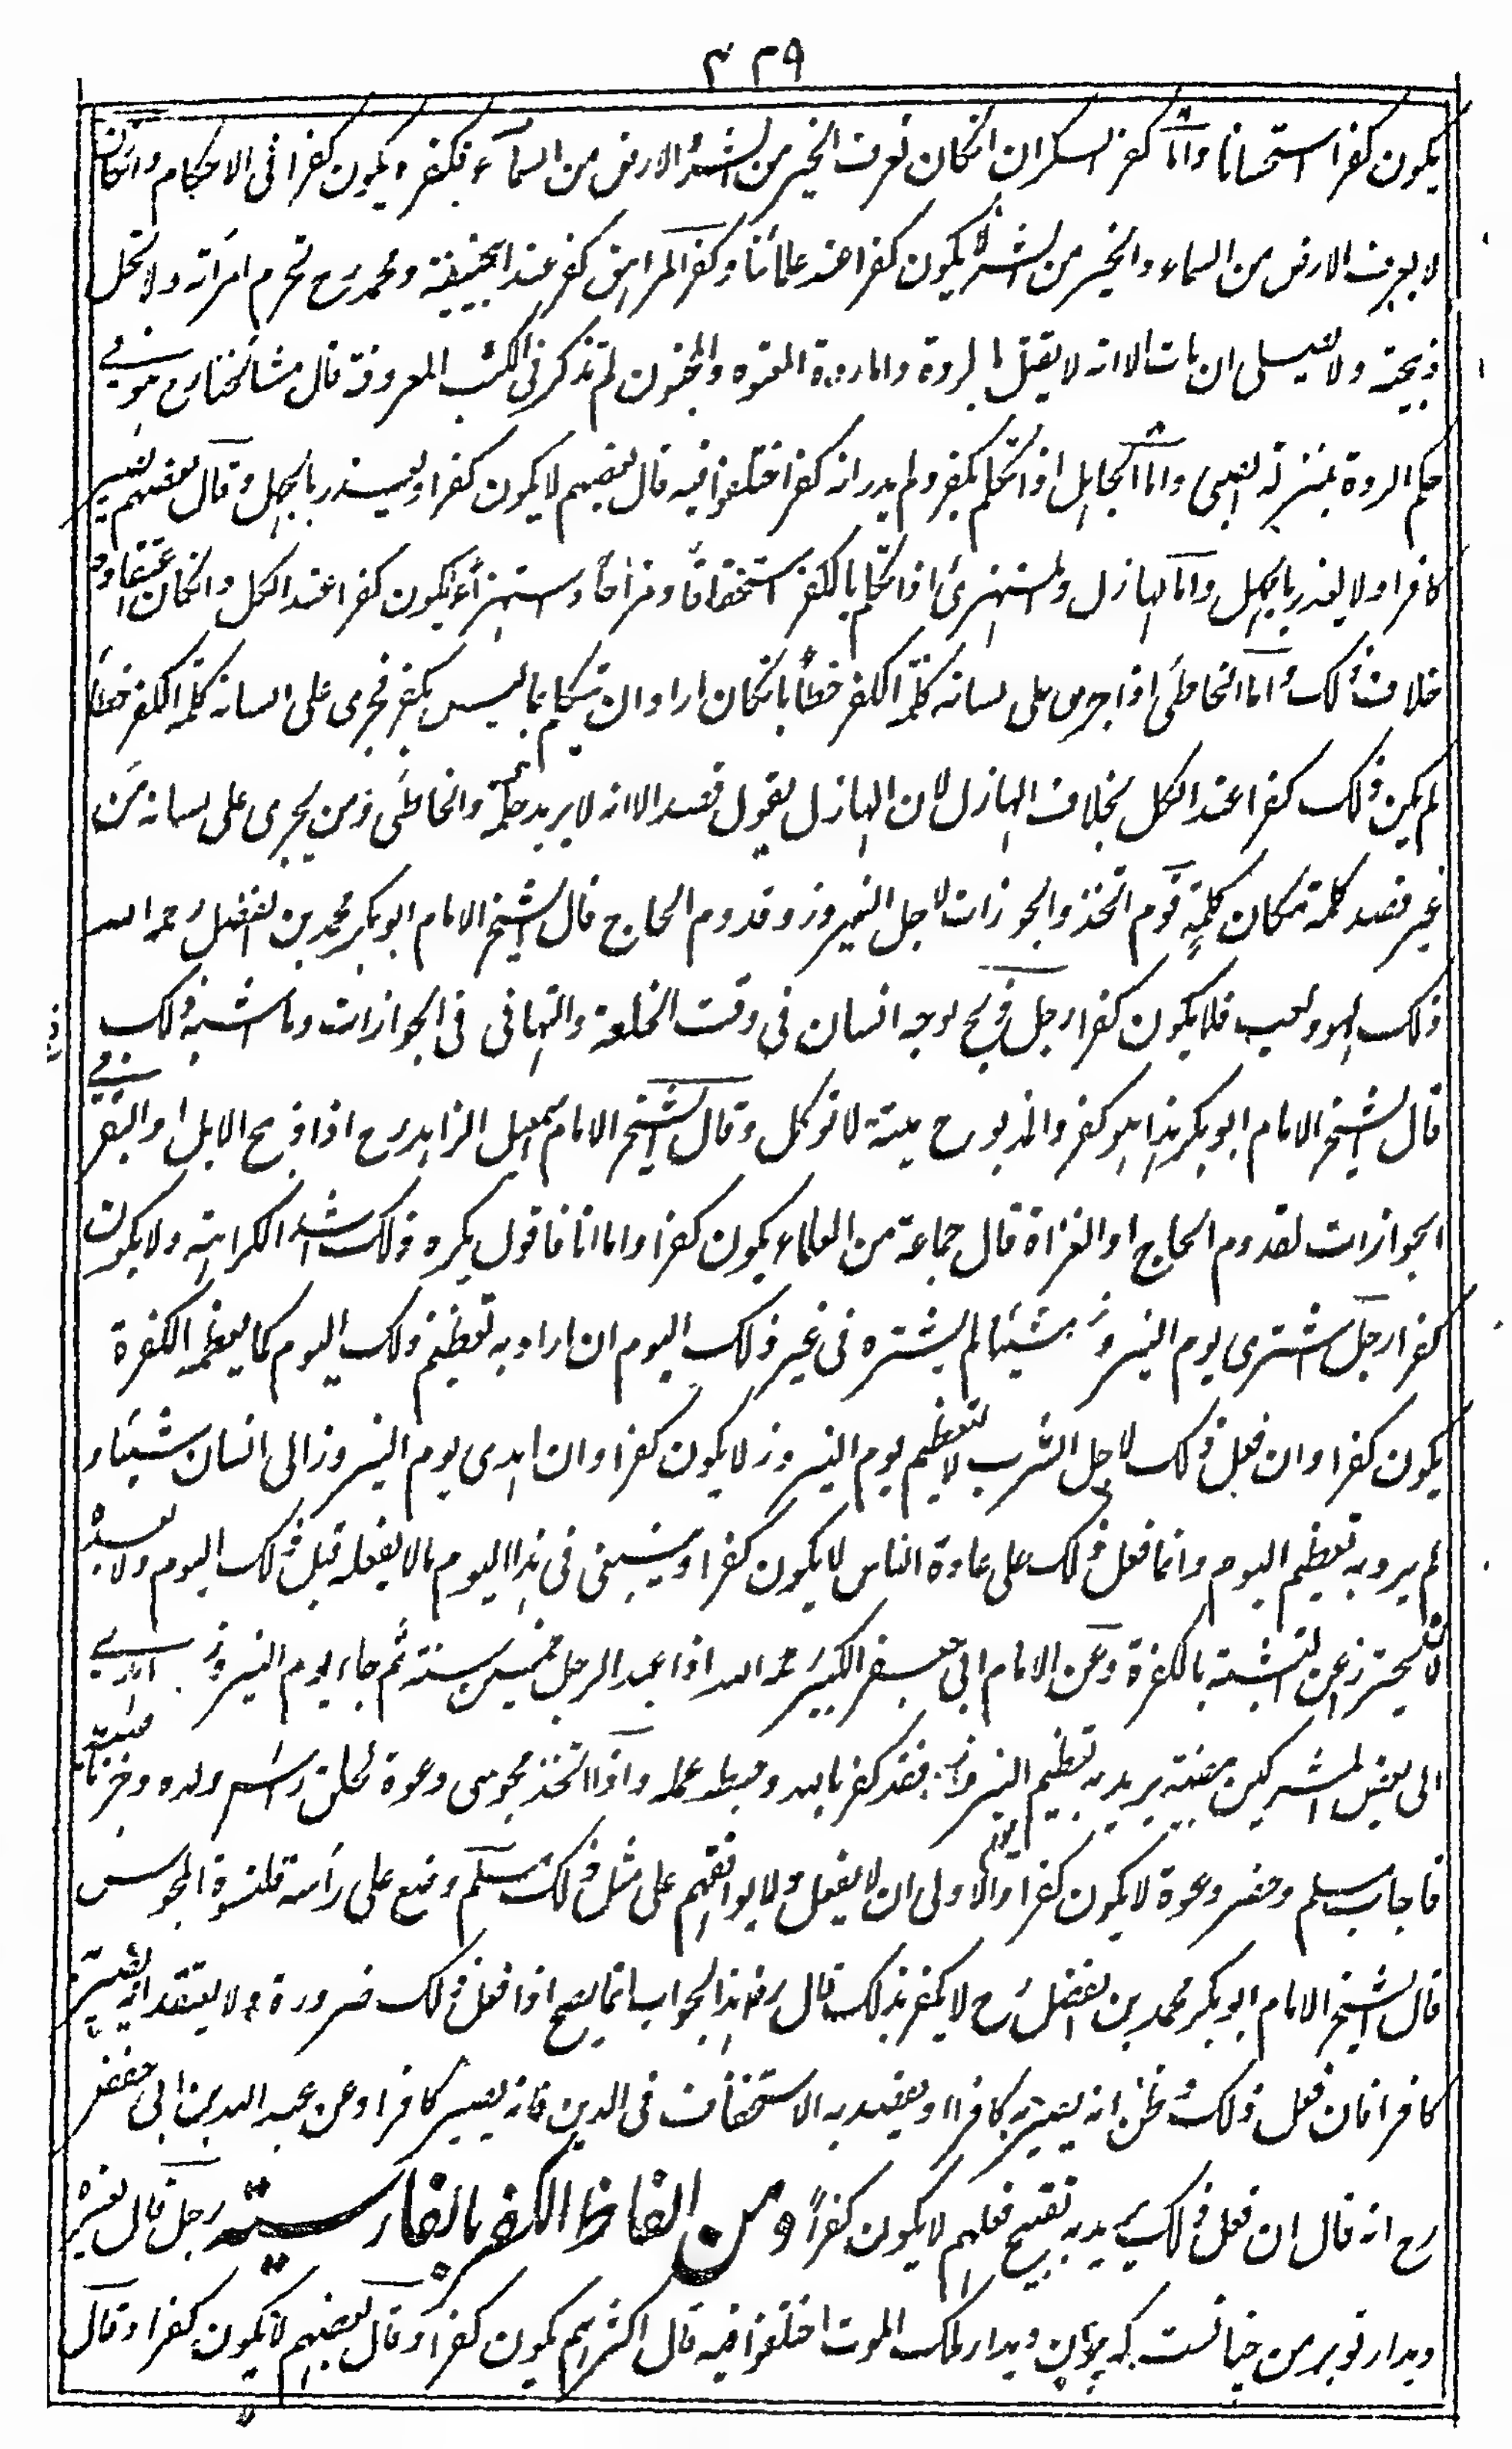 ٤٢٩
يكون كفرا استحسانا واما كفر السكران انكان يعرف الخير من الشر والارض من السماء فكفره يكون كفرا فى الاحكام وانكان
لا يعرف الارض من السماء والخير من الشر لا يكون كفرا عند علمائنا وكفر المراهق كفر عند ابيحنيفة ومحمد رح تحرم امرأته ولا تحل
ذبيحته ولا يصلى ان مات الا انه لا يقتل بالردة واما ردة المعتوه والمجنون لم تذكر فى الكتب المعروفة قال مشائخنا رح هو فى
حكم الردة بمنزلة الصبى واما الجاهل اذا تكلم بكفر ولم يدر انه كفر اختلفوا فيه قال بعضهم لا يكون كفرا ويعذر بالجهل وقال بعضهم يصير
كافرا ولا يعذر بالجهل واما الهازل والمستهزئ اذا تكلم بالكفر استخفافا ومزاحا واستهزاء يكون كفرا عند الكل وانكان اعتقاده
خلاف ذلك واما الخاطئ اذا جرى على لسانه كلمة الكفر خطأ بانكان اراد ان يتكلم بما ليس بكفر فجرى على لسانه كلمة الكفر خطأ
لم يكن ذلك كفرا عند الكل بخلاف الهازل لان الهازل يقول قصدا الا انه لا يريد حكمه والخاطئ من يجرى على لسانه من
غير قصد كلمة مكان كلمة قوم اتخذوا الجوازات لاجل النيروز وقدوم الحاج قال الشيخ الامام ابو بكر محمد بن الفضل رحمه الله
ذلك لهو ولعب فلا يكون كفرا رجل ذبح لوجه انسان فى وقت الخلعة والتهانى فى الجوازات وما اشبه ذلك
قال الشيخ الامام ابو بكر هذا هو كفر والمذبوح ميتة لا تؤكل وقال الشيخ الامام اسمعيل الزاهد رح اذا ذبح الابل او البقر فى
الجوازات لقدوم الحاج او الغزاة قال جماعة من العلماء يكون كفرا واما انا فاقول يكره ذلك اشد الكراهية ولا يكون
كفرا رجل اشترى يوم النيروز شيئا لم يشتره فى غير ذلك اليوم ان اراد به تعظيم ذلك اليوم كما يعظمه الكفرة
يكون كفرا وان فعل ذلك لاجل الشرب لا لتعظيم يوم النيروز لا يكون كفرا وان اهدى يوم النيروز الى انسان شيئا و
لم يرد به تعظيم اليوم وانما فعل ذلك على عادة الناس لا يكون كفرا وينبغى فى هذا اليوم ما لا يفعله قبل ذلك اليوم ولا بعده
يحترز عن التشبه بالكفرة وعن الامام ابى حفص الكبير رحمه الله اذا عبد الرجل خمسين سنة ثم جاء يوم النيروز اهدى
الى بعض المشركين بيضة يريد به تعظيم النيروز فقد كفر بالله وحبط عمله واذا اتخذ مجوسى دعوة لحلق رأس ولده
فاجاب مسلم وحضر دعوة لا يكون كفرا والاولى ان لا يفعل ولا يوافقهم على مثل ذلك مسلم وضع على رأسه قلنسوة المجوس
قال الشيخ الامام ابو بكر محمد بن الفضل رح لا يكفر بذلك قال رض هذا الجواب انما يصح اذا فعل ذلك ضرورة ولا يعتقد انه يصير
كافرا فان فعل ذلك وظن انه يصير به كافرا او يقصد به الاستخفاف فى الدين فانه يصير كافرا وعن عبد الله بن ابى حفص
رح انه قال ان فعل ذلك يريد به تقبيح فعلهم لا يكون كفرا ومن الفاظ الكفر بالفارسية رجل قال لغيره
ديدار تو بر من چنانست كه ديدار ملك الموت اختلفوا فيه قال اكثرهم يكون كفرا وقال بعضهم لا يكون كفرا وقال